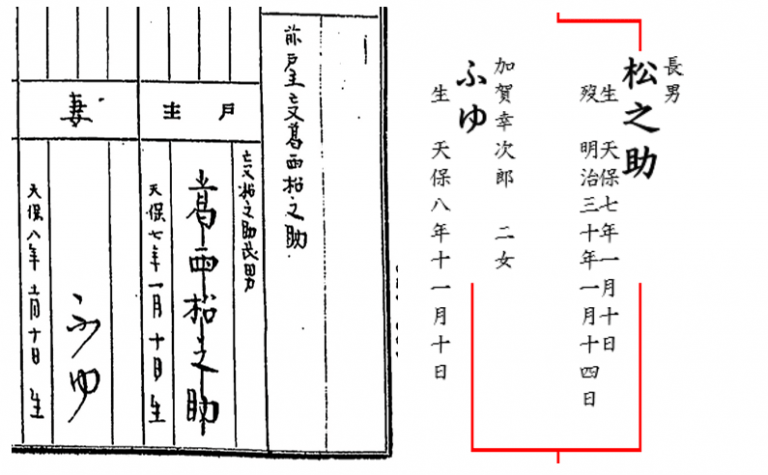 長男
松之助
生 天保七年一月十日
歿 明治三十年一月十四日
加賀幸次郎 二女
ふゆ
生 天保八年十一月十日
前戸主亡父葛西松之助
戸主
亡父松之助長男
葛西松之助
天保七年一月十日生
妻
ふゆ
天保八年十一月十日生